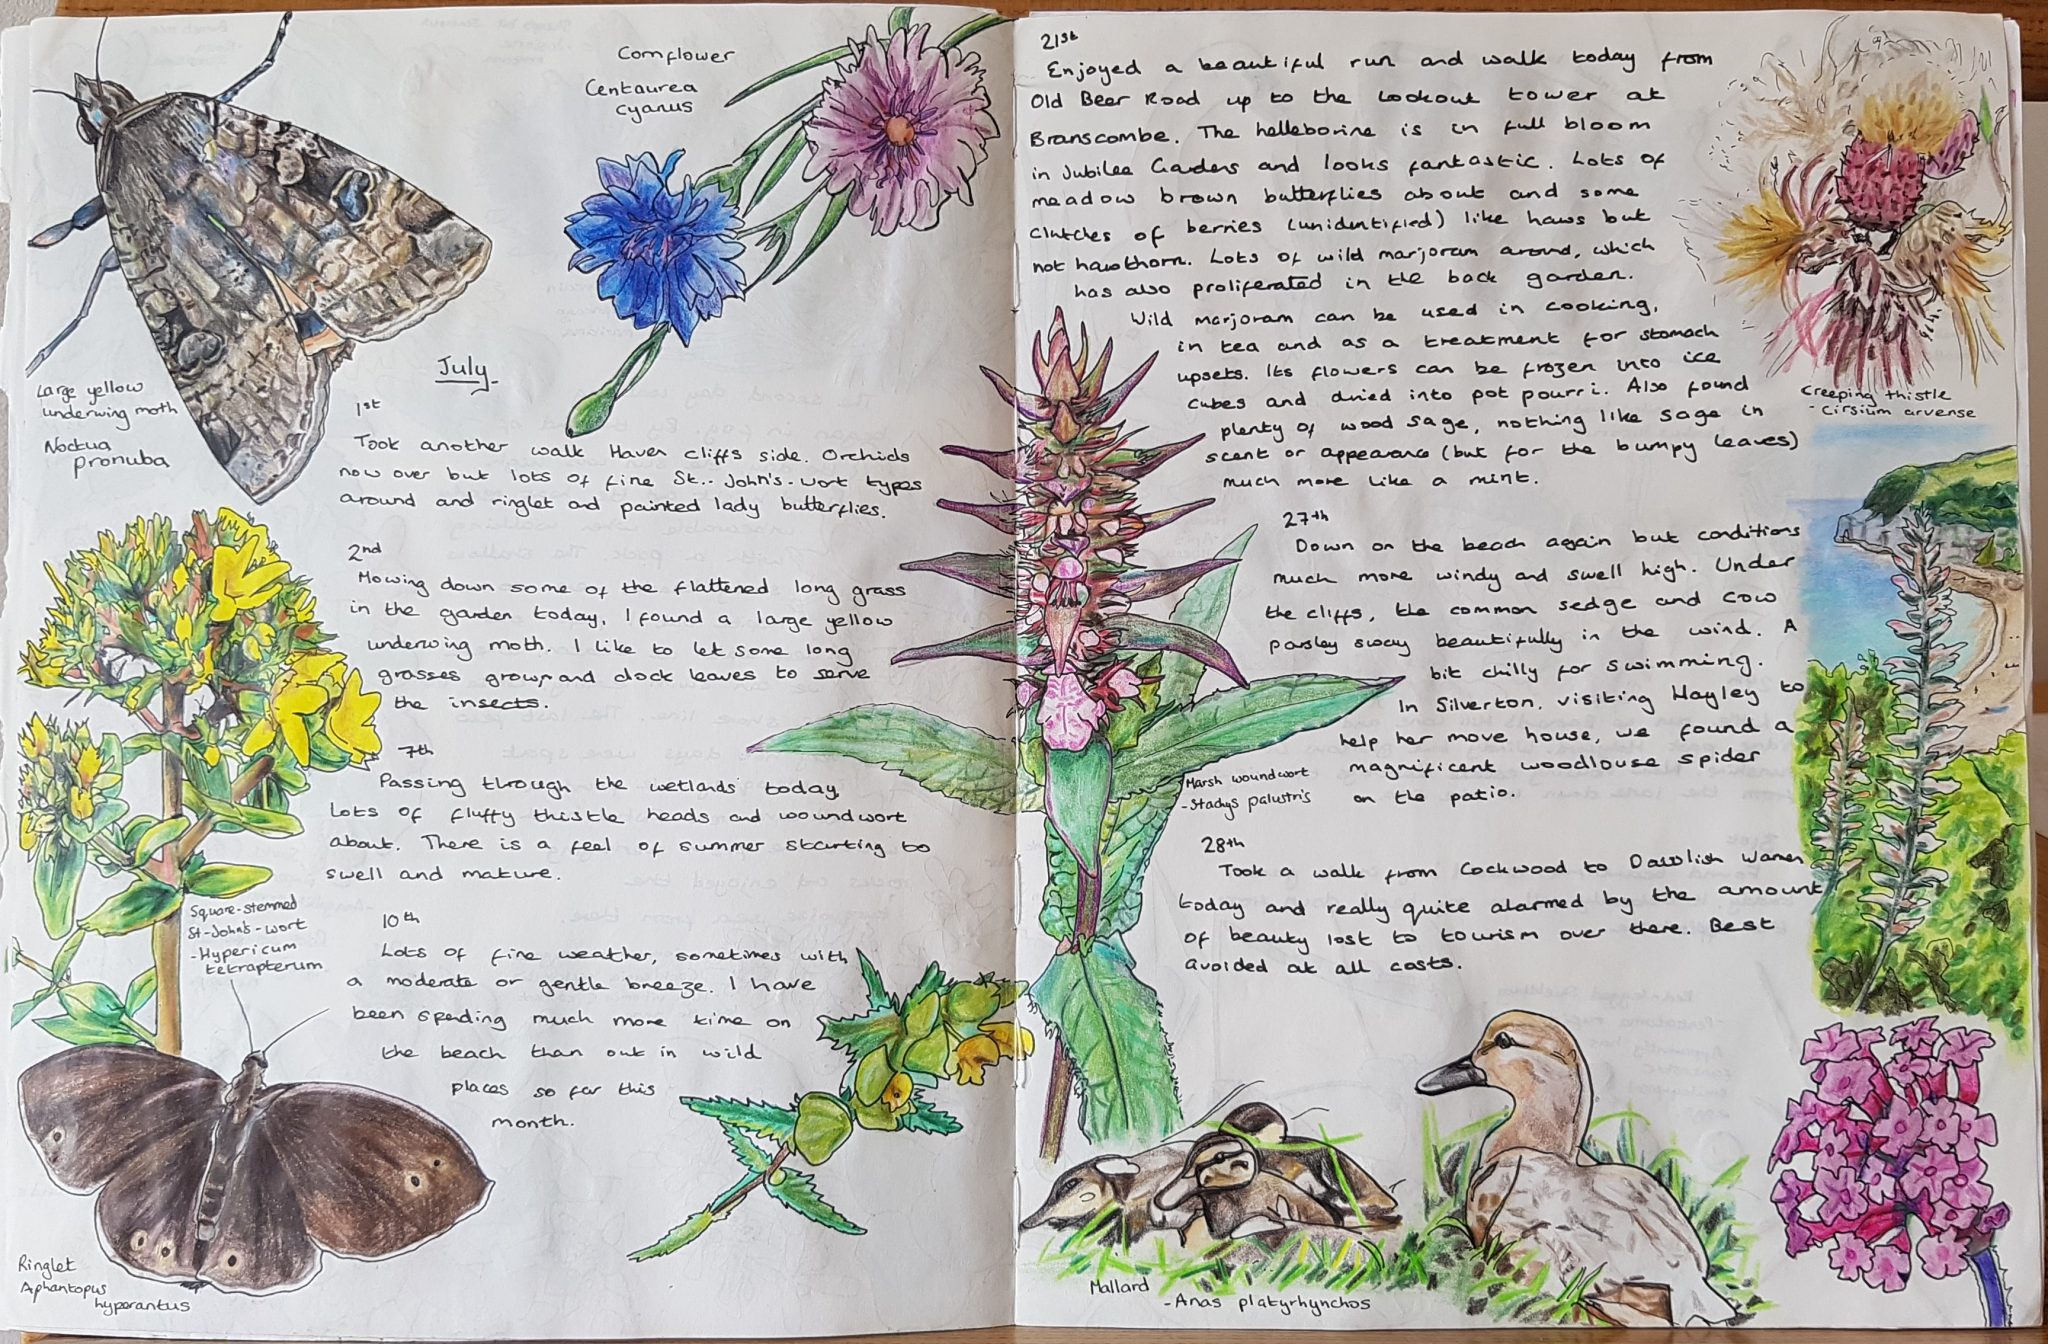 Large yellow
underwing moth
Noctua
pronuba
Cornflower
Centaurea
cyanus
July
1st
Took another walk Haven cliffs side. Orchids
now over but lots of fine St.. John's-wort types
around and ringlet and painted lady butterflies.
2nd
Mowing down some of the flattened long grass
in the garden today, I found a large yellow
underwing moth. I like to let some long
grasses grow, and dock leaves to serve
the insects.
7th
Passing through the wetlands today,
Lots of fluffy thistle heads and woundwort
about. There is a feel of summer starting to
swell and mature.
Square-stemmed
St-John's-wort
-Hypericum
tetrapterum
10th
Lots of fine weather, sometimes with
a moderate or gentle breeze. I have
been spending much more time on
the beach than out in wild
places so far this
month.
Ringlet
Aphantopus
hyperantus
21st
Enjoyed a beautiful run and walk today from
Old Beer Road up to the Lookout tower at
Branscombe. The helleborine is in full bloom
in Jubilee Gardens and looks fantastic. Lots of
meadow brown butterflies about and some
clutches of berries (unidentified) like haws but
not hawthorn. Lots of wild marjoram around, which
has also proliferated in the back garden.
Wild marjoram can be used in cooking,
in tea and as a treatment for stomach
upsets. Its flowers can be frozen into ice
cubes and dried into pot pourri. Also found
plenty of wood sage, nothing like sage in
scent or appearance (but for the bumpy leaves)
much more like a mint.
Creeping thistle
- Cirsium arvense
27th
Down on the beach again but conditions
much more windy and swell high. Under
the cliffs, the common sedge and cow
parsley sway beautifully in the wind. A
bit chilly for swimming.
In Silverton, visiting Hayley to
help her move house, we found a
magnificent woodlouse spider
on the patio.
Marsh woundwort
-Stachys palustris
28th
Took a walk from Cockwood to Dawlish Warren
today and really quite alarmed by the amount
of beauty lost to tourism over there. Best
avoided at all costs.
Mallard
-Anas platyrhynchos